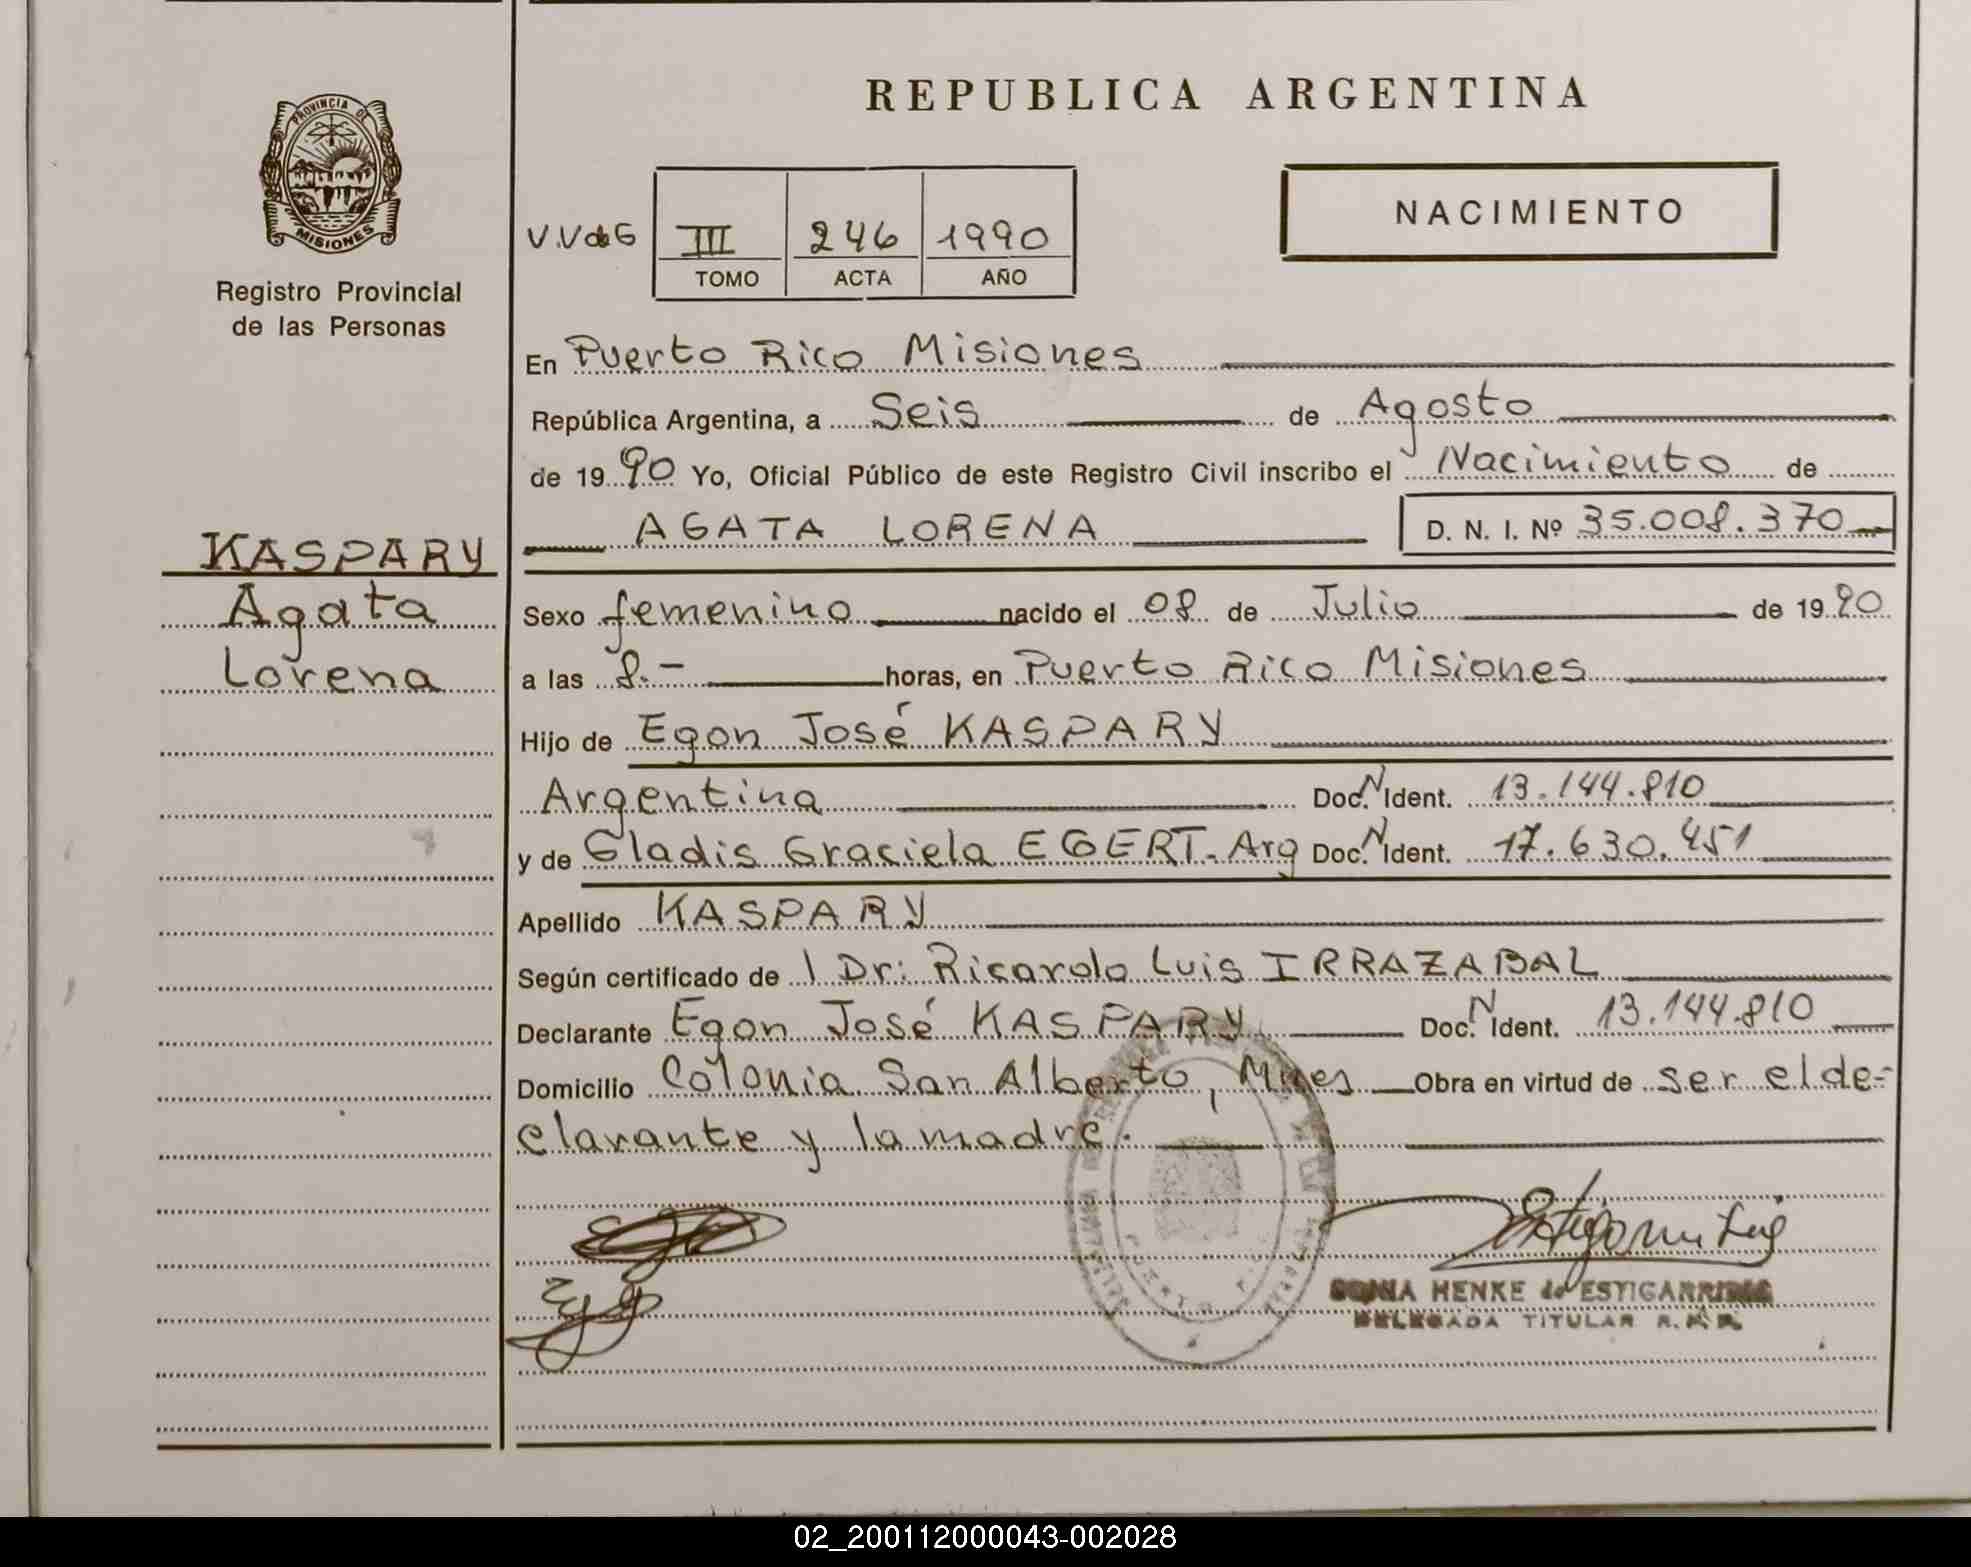 PROVINCIA DE
MISIONES
Registro Provincial
de las Personas
KASPARY
Agata
Lorena
REPUBLICA ARGENTINA
NACIMIENTO
V.V de G III 246 1990
TOMO ACTA AÑO
En Puerto Rico Misiones
República Argentina, a Seis de Agosto
de 1990 Yo, Oficial Público de este Registro Civil inscribo el Nacimiento de
AGATA LORENA D. N. I. Nº 35.008.370
Sexo femenino nacido el 08 de Julio de 1990
a las 8.- horas, en Puerto Rico Misiones
Hijo de Egon José KASPARY
Argentina Doc. N Ident. 13.144.810
y de Gladis Graciela EGERT. Arg Doc. N Ident. 17.630.451
Apellido KASPARY
Según certificado de 1 Dr: Ricardo Luis IRRAZABAL
Declarante Egon José KASPARY Doc. N Ident. 13.144.810
Domicilio Colonia San Alberto, Mnes Obra en virtud de ser el de-
clarante y la madre.
SONIA HENKE de ESTIGARRIBIA
DELEGADA TITULAR R. P. P.
02_200112000043-002028